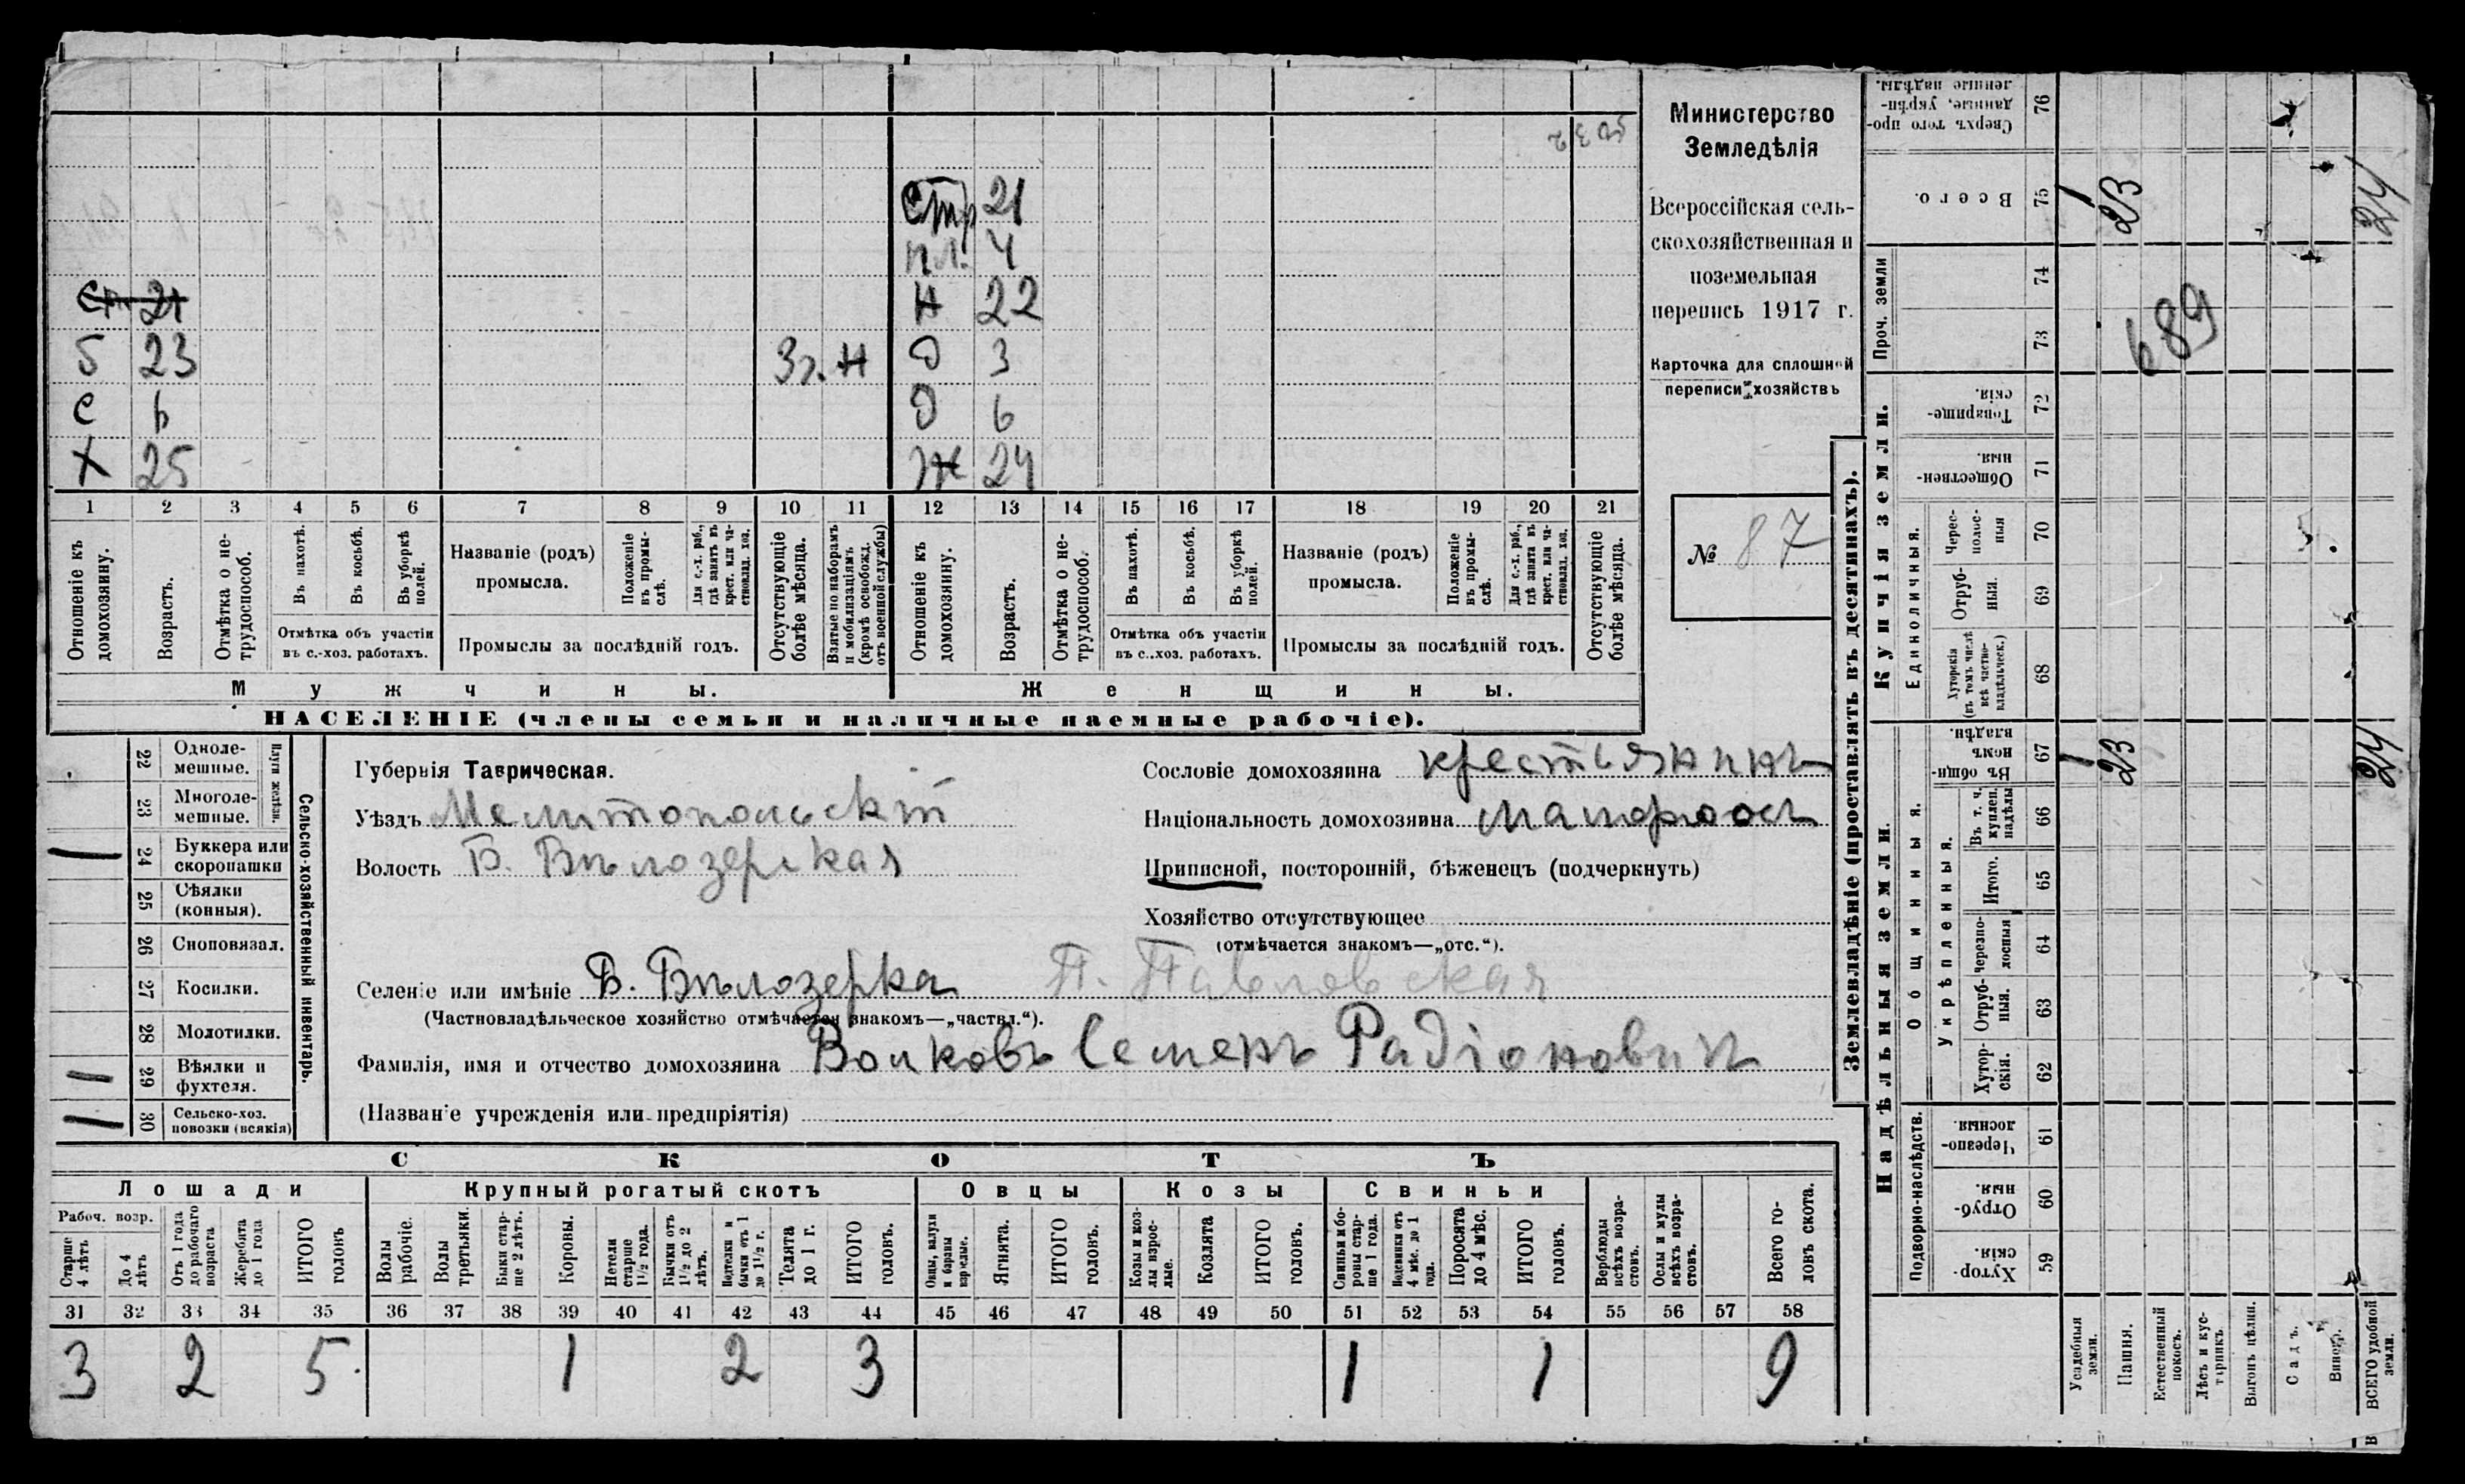 Министерство
Земледѣлія
Всероссійская сель-
скохозяйственная и
поземельная
перепись 1917 г.
Карточка для сплошной
переписи хозяйствъ
№ 87
Стр 21
пл. 4
Ст 21 Н 22
Б 23 3г. Н Д 3
С 6 Д 6
Х 25 Ж 24
1 2 3 4 5 6 7 8 9 10 11 12 13 14 15 16 17 18 19 20 21
Отношеніе къ домохозяину.
Возрастъ.
Отмѣтка о не-трудоспособ.
Въ пахотѣ.
Въ косьбѣ.
Въ уборкѣ полей.
Отмѣтка объ участіи
въ с.-хоз. работахъ.
Названіе (родъ)
промысла.
Положеніе въ промы-слѣ.
Для с.-х. раб., гдѣ занятъ въ крест. или ча-стновлад. хоз.
Промыслы за послѣдній годъ.
Отсутствующіе болѣе мѣсяца.
Взятые по наборамъ и мобилизаціямъ (кромѣ освобожд. отъ военной службы)
Отношеніе къ домохозяину.
Возрастъ.
Отмѣтка о не-трудоспособ.
Въ пахотѣ.
Въ косьбѣ.
Въ уборкѣ полей.
Отмѣтка объ участіи
въ с.-хоз. работахъ.
Названіе (родъ)
промысла.
Положеніе въ промы-слѣ.
Для с.-х. раб., гдѣ занята въ крест. или ча-стновлад. хоз.
Промыслы за послѣдній годъ.
Отсутствующіе болѣе мѣсяца.
Мужчины. Женщины.
НАСЕЛЕНІЕ (члены семьи и наличные наемные рабочіе).
22 Одноле-мешные.
23 Многоле-мешные.
Плуги желѣзн.
1 24 Буккера или скоропашки
25 Сѣялки (конныя).
26 Сноповязал.
27 Косилки.
28 Молотилки.
1 29 Вѣялки и фухтеля.
1 30 Сельско-хоз. повозки (всякія)
Сельско-хозяйственный инвентарь.
Губернія Таврическая.
Уѣздъ Мелитопольскій
Волость Б. Бѣлозерская
Сословіе домохозяина крестьянинъ
Національность домохозяина малороссъ
Приписной, посторонній, бѣженецъ (подчеркнуть)
Хозяйство отсутствующее
(отмѣчается знакомъ—„отс.“).
Селеніе или имѣніе Б. Бѣлозерка П. Павловская
(Частновладѣльческое хозяйство отмѣчается знакомъ—„частвл.“).
Фамилія, имя и отчество домохозяина Волковъ Семенъ Радіонович
(Названіе учрежденія или предпріятія)
СКОТЪ
Лошади Крупный рогатый скотъ Овцы Козы Свиньи
Рабоч. возр.
Старше 4 лѣтъ
До 4 лѣтъ
Отъ 1 года до рабочаго возраста
Жеребята до 1 года
ИТОГО головъ
Волы рабочіе.
Волы третьяки.
Быки стар-ше 2 лѣтъ.
Коровы.
Нетели старше 1½ года.
Бычки отъ 1½ до 2 лѣтъ.
Подтелки и бычки отъ 1 до 1½ г.
Телята до 1 г.
ИТОГО головъ.
Овцы, валухи и бараны взрослые.
Ягнята.
ИТОГО головъ.
Козы и коз-лы взрос-лые.
Козлята
ИТОГО головъ.
Свиньи и бо-ровы стар-ше 1 года.
Подсвинки отъ 4 мѣс. до 1 года.
Поросята до 4 мѣс.
ИТОГО головъ.
Верблюды всѣхъ возра-стовъ.
Ослы и мулы всѣхъ возра-стовъ.
Всего го-ловъ скота.
31 32 33 34 35 36 37 38 39 40 41 42 43 44 45 46 47 48 49 50 51 52 53 54 55 56 57 58
3 2 5 1 2 3 1 1 9
Землевладѣніе (проставлять въ десятинахъ).
Надѣльныя земли. Купчія земли. Проч. земли
Подворно-наслѣдств.
Общинныя.
Укрѣпленныя.
Единоличныя.
Хутор-скія. 59
Отруб-ныя. 60
Черезпо-лосныя. 61
Хутор-скія. 62
Отруб-ныя. 63
Черезпо-лосныя 64
Итого. 65
Въ т. ч. куплен. надѣлы 66
Въ общи-номъ владѣн. 67 1 23 24
Хуторскія (въ томъ числѣ всѣ частно-владѣльческ.) 68
Отруб-ныя. 69
Черес-полос-ныя 70
Обществен-ныя. 71
Товарище-скія. 72
73
74
689
Всего. 75 1 23 24
Сверхъ того про-данные, укрѣп-ленные надѣлы. 76
Усадебныя земли.
Пашня.
Естественный покосъ.
Лѣсъ и кус-тарникъ.
Выгонъ цѣлин.
Садъ.
Виногр.
ВСЕГО удобной земли.